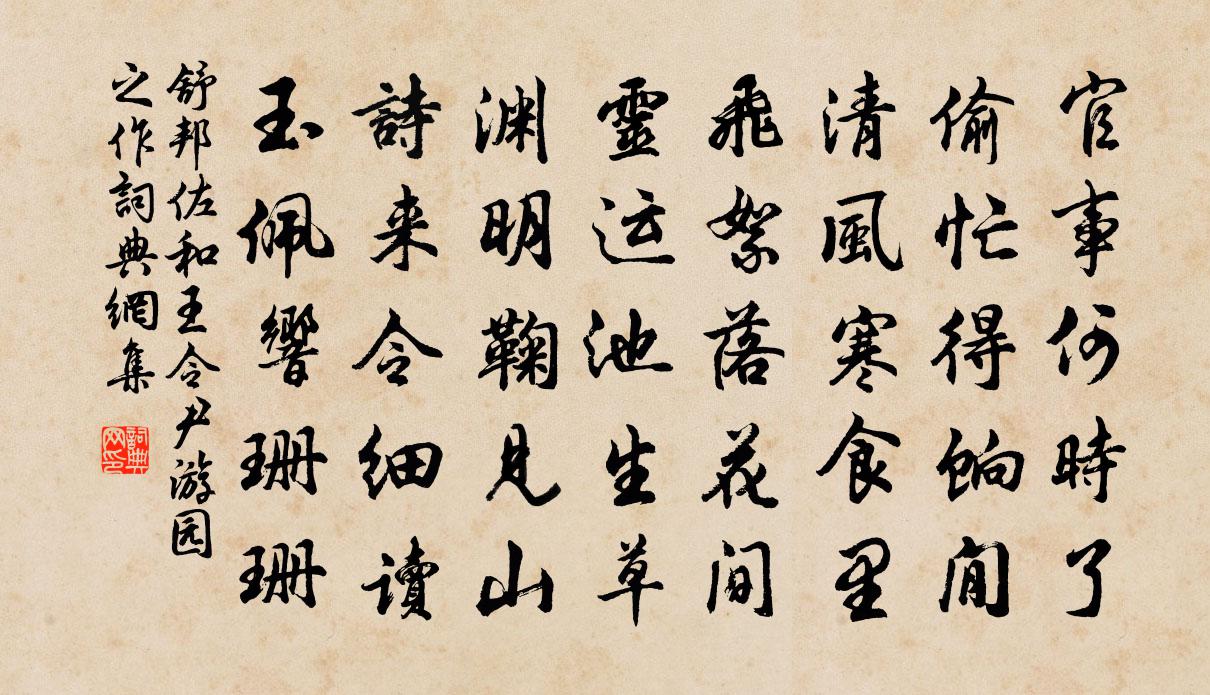 官事何時了
偷忙得餉閒
清風寒食里
飛絮落花間
靈运池生草
渊明鞠見山
詩来令細讀
玉佩響珊珊
舒邦佐和王令尹游园
之作詞典網集
詞典网印